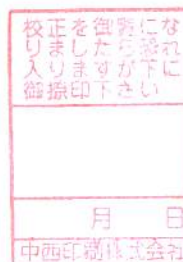 校正を御覧にな
りましたら恐れ
入りますが下に
御捺印下さい
月 日
中西印刷株式会社